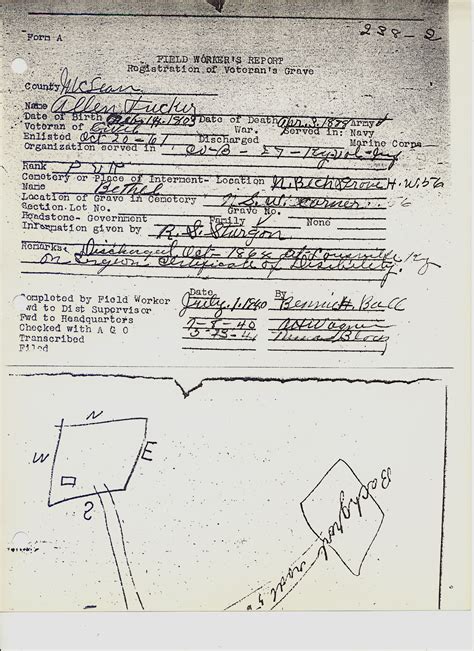 Form A 238-2
FIELD WORKER'S REPORT
Registration of Veteran's Grave
County McLean
Name Allen Tucker
Date of Birth 14, 1803 Date of Death Apr. 3, 1878 Army
Veteran of Civil War. Served in: Navy
Enlisted Oct-20-61 Discharged Marine Corps
Organization served in Co-B-
Rank Pvt
Cemetery or Place of Interment- Location N. Bech Grove H.W. 56
Name Bethel
Location of Grave in Cemetery N. S. W. Corner
Section.Lot No. Grave No.
Headstone- Government Family None
Information given by R. S. Sturgon
Remarks: Discharged Oct-1862 at Louisville Ky
on Surgeon's Certificate of Disibility.
Date By
Completed by Field Worker July 1, 1940 Bennie H. Ball
Fwd to Dist Supervisor
Fwd to Headquarters 7-8-40 Wagner
Checked with A G O
Transcribed
Filed
N
W E
S